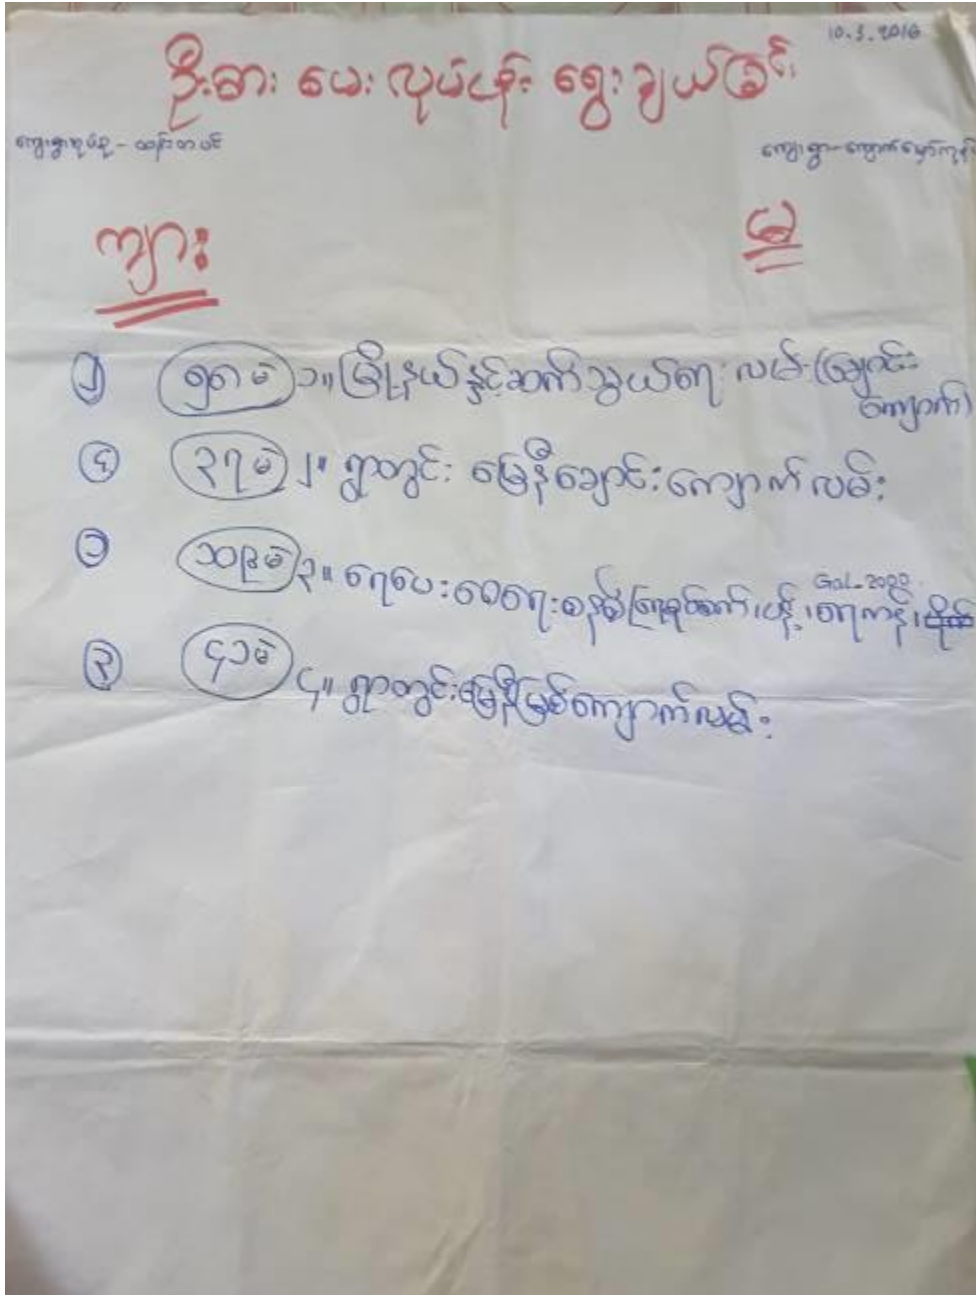 10.3.2016
ဦးစား ပေး လုပ်ငန်း ရွေး ချယ်ခြင်း
ကျေးရွာအုပ်စု - ထန်းတပင်
ကျေးရွာ-ကျောက်မှော်ကုန်း
ကျား
မ
၂ ၅၈ မဲ ၁။ မြို့နယ်နှင့်ဆက်သွယ်ရေး လမ်း (ချောင်း
ကျောက်)
၄ ၃၇ မဲ ၂။ ရွာတွင်း မြေနီချောင်းကျောက်လမ်း
၁ ၁၀၉မဲ ၃။ ရေပေးဝေရေးစနစ်
၃ ၄၁မဲ ၄။ ရွာတွင်းမြေနီမြစ်ကျောက်လမ်း